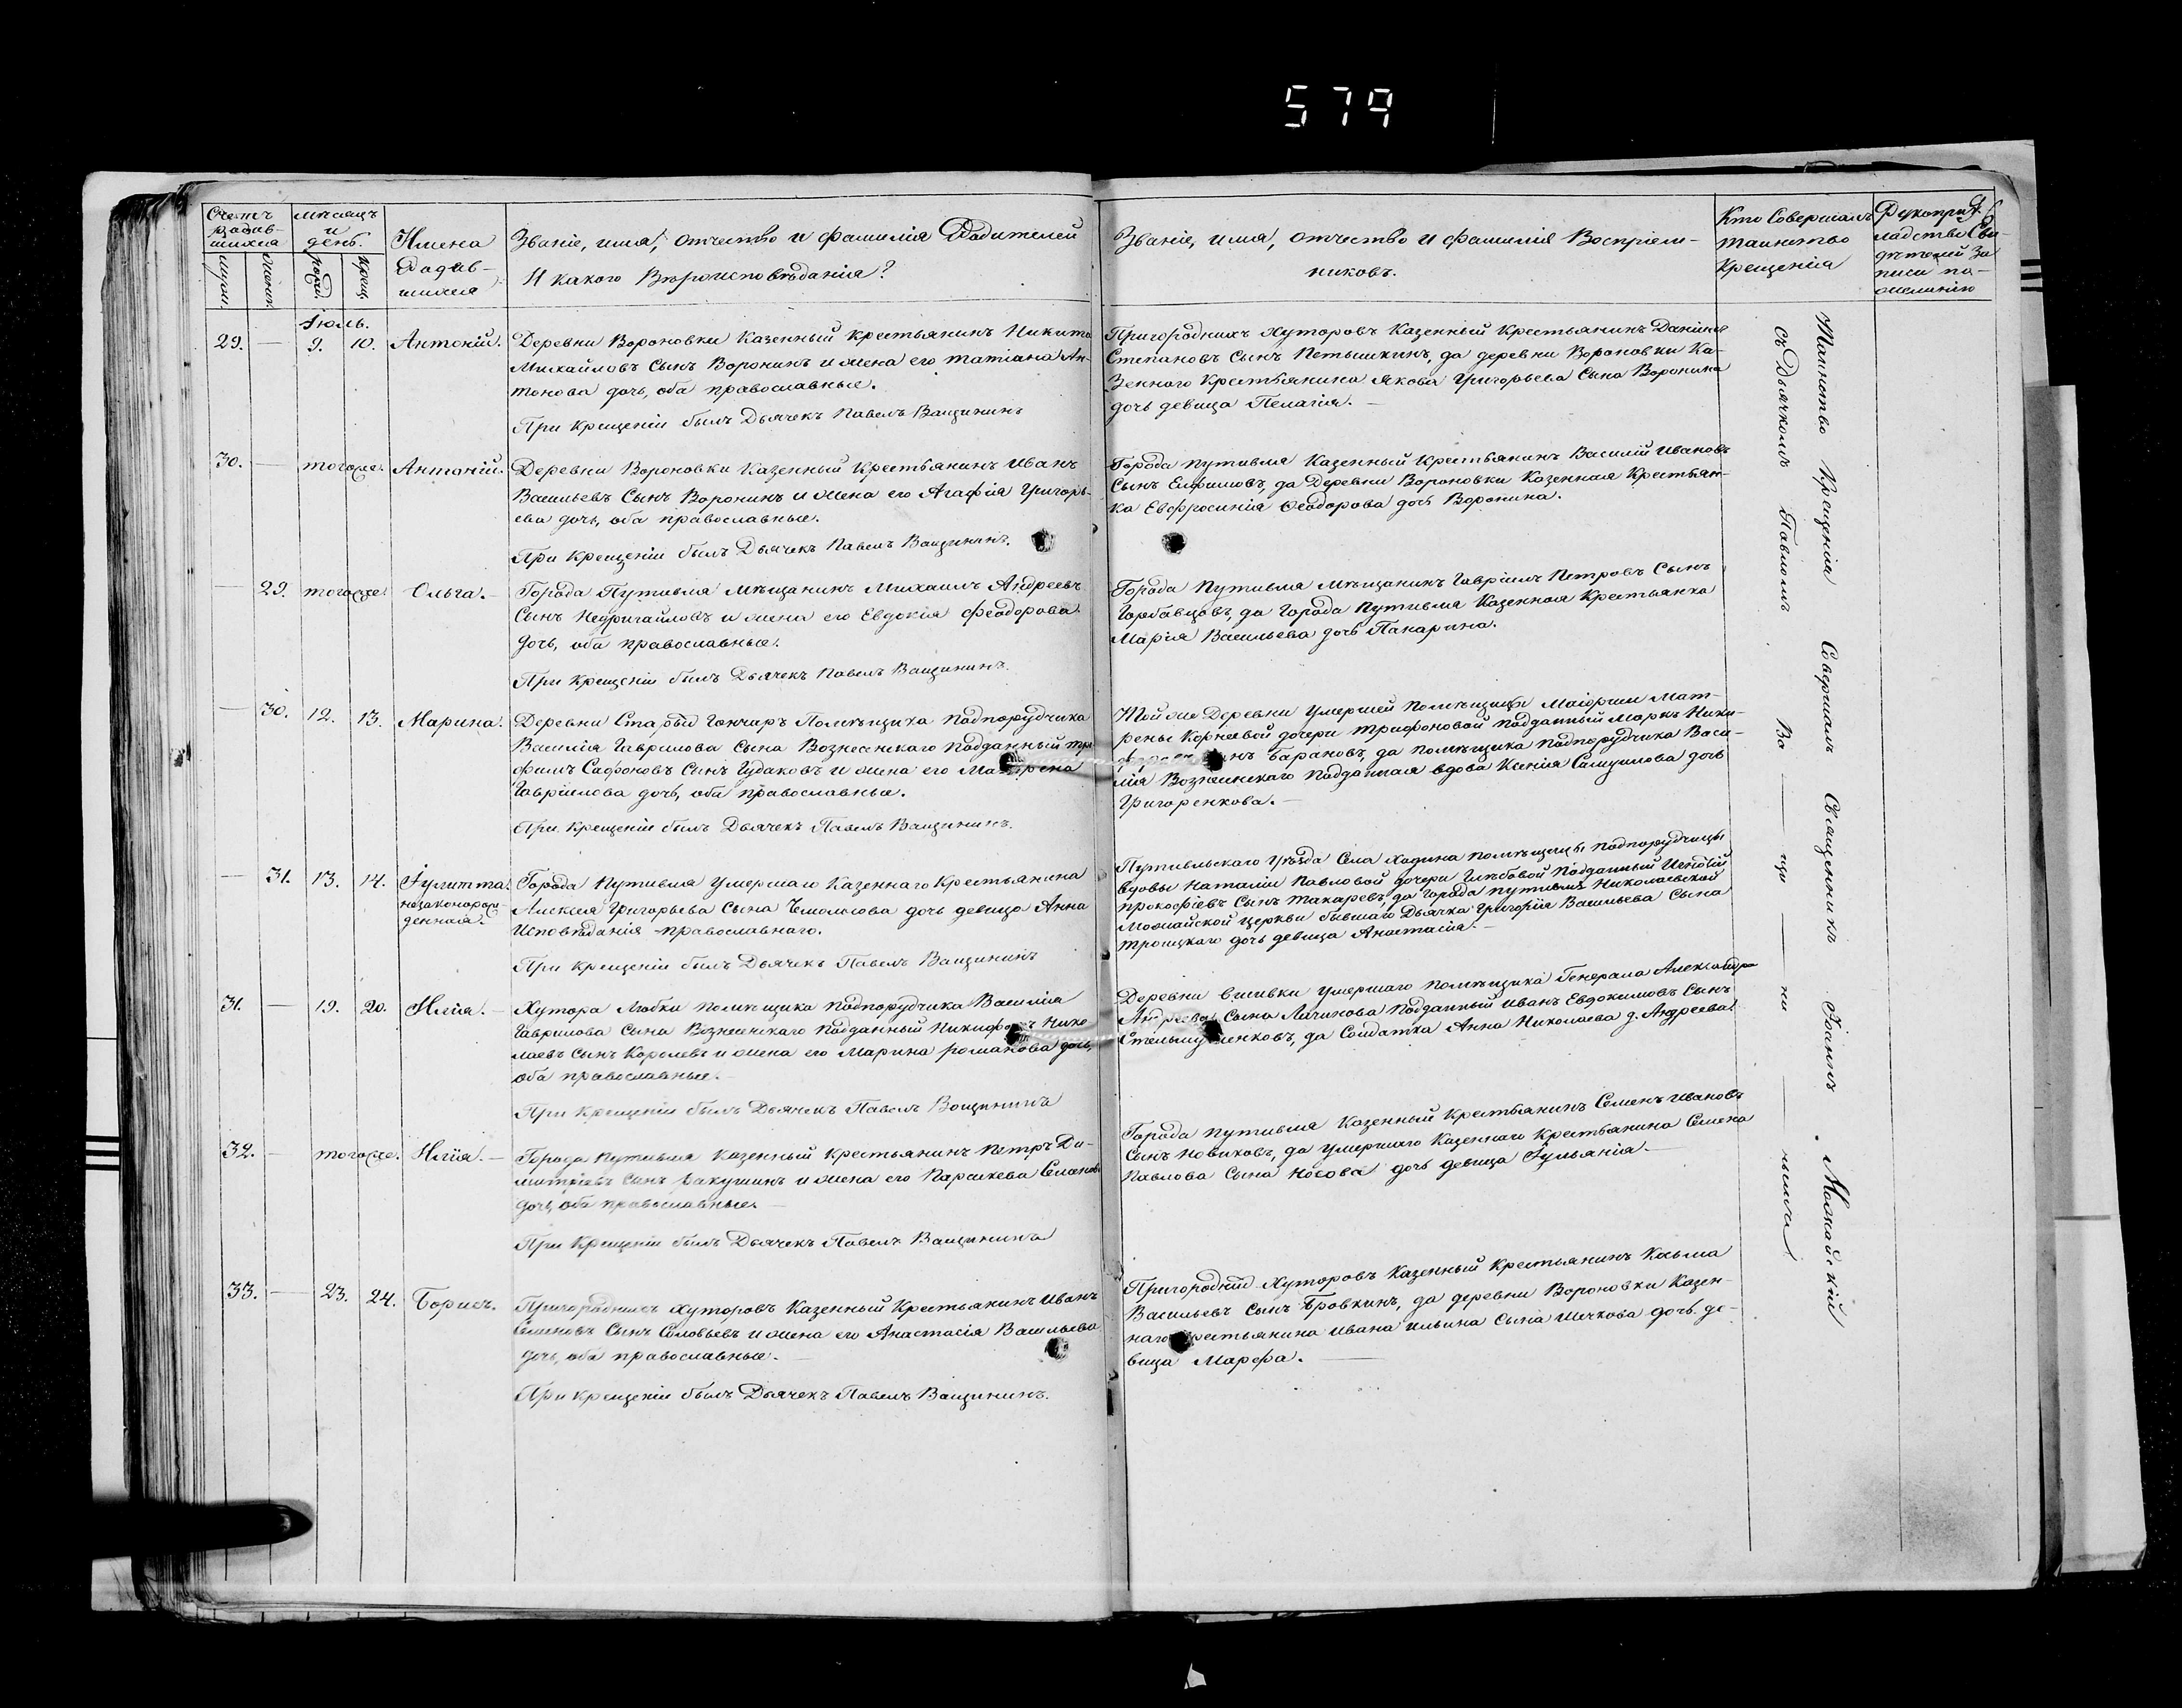 579
Счетъ родив-шихся
муж.
женск.
мѣсяцъ и день.
рожд.
крещ.
Имена Родив-шихся
Званіе, имя, отчество и фамилія Родителей
И какого Вѣроисповѣданія?
Званіе, имя, отчество и фамилія Воспріем-
никовъ.
Кто Совершалъ
таинство
Крещенія
Рукопри-
кладство Сви-
дѣтелей За
писи по
желанію
Іюль.
29. — 9. 10. Антоній. Деревни Вороновки Казенный крестьянинъ Никита
Михайловъ Сынъ Воронинъ и жена его Татіана Ан-
тонова дочь, оба православные.
При Крещеніи былъ Дьячекъ Павелъ Ващининъ
Пригородныхъ Хуторовъ Казенный Крестьянинъ Даніилъ
Степановъ Сынъ Петышкинъ, да деревни Вороновки Ка-
зеннаго Крестьянина Якова Григорьева Сына Воронина
дочь девица Пелагія. —
30. — тогоже. Антоній. Деревни Вороновки Казенный Крестьянинъ Иванъ
Васильевъ Сынъ Воронинъ и жена его Агафія Григорь-
ева дочь, оба православные.
При Крещеніи былъ Дьячекъ Павелъ Ващининъ.
Города Путивля Казенный Крестьянинъ Василій Ивановъ
Сынъ Ефимовъ, да Деревни Вороновки Казенная Крестьян-
ка Евфросинія Феодорова дочь Воронина.
— 29. тогоже. Ольга. — Города Путивля Мѣщанинъ Михаилъ Андреевъ
Сынъ Недригайловъ и жена его Евдокія Феодорова
дочь, оба православные.
При Крещеніи былъ Дьячекъ Павелъ Ващининъ.
Города Путивля Мѣщанинъ Гавріилъ Петровъ Сынъ
Горбавцовъ, да Города Путивля Казенная Крестьянка
Марія Васильева дочь Панарина.
— 30. 12. 13. Марина. Деревни Старыхъ Гончаръ Помѣщика подпорудчика
Василія Гаврилова Сына Вознесенскаго подданный Тро-
фимъ Сафоновъ Сынъ Гудаковъ и жена его Матрена
Гавріилова дочь, оба православные.
При Крещеніи былъ Дьячекъ Павелъ Ващининъ.
Той же Деревни умершей Помѣщицы Маіорши Мат-
рены Корнеевой дочери Трифоновой подданный Маркъ Ники-
Барановъ, да помѣщика подпорудчика Васи-
лія Вознесенскаго подданная вдова Ксенія Самуилова дочь
Григоренкова. —
— 31. 13. 14. Іулитта.
незаконорож-
денная.
Города Путивля умершаго Казеннаго Крестьянина
Алексея Григорьева Сына дочь девица Анна
Исповѣданія православнаго.
При Крещеніи былъ Дьячекъ Павелъ Ващининъ
Путивльскаго уѣзда Села Ходина помѣщицы подпорудчицы
вдовы Наталіи Павловой дочери Глѣбовой подданный Игнатій
Прокофіевъ Сынъ Макаревъ, да Города Путивля Николаевской
Можайской церкви бывшаго Дьячка Григорія Васильева Сына
Троицкаго дочь девица Анастасія. —
31. — 19. 20. Илія. — Хутора Любки помѣщика подпорудчика Василія
Гаврилова Сына Вознесенскаго подданный Никифоръ Нико
лаевъ Сынъ Королевъ и жена его Марина Романова дочь,
оба православные. —
При Крещеніи былъ Дьячекъ Павелъ Ващининъ
Деревни умершаго помѣщика Генерала Александра
Андреева Сына Личинова подданный Иванъ Евдокимовъ Сынъ
да Солдатка Анна Николаева д. Андреева.
32. — тогоже. Илія. — Города Путивля Казенный Крестьянинъ Петръ Ди-
митріевъ Сынъ Бакушинъ и жена его Параскева Семенова
дочь, оба православные. —
При Крещеніи былъ Дьячекъ Павелъ Ващининъ
Города Путивля Казенный Крестьянинъ Семенъ Ивановъ
Сынъ Новиковъ, да умершаго Казеннаго Крестьянина Семена
Павлова Сына Носова дочь девица Іульянія. —
33. — 23. 24. Борисъ. Пригородныхъ Хуторовъ Казенный Крестьянинъ Иванъ
Семеновъ Сынъ Соловьевъ и жена его Анастасія Васильева
дочь, оба православные. —
При Крещеніи былъ Дьячекъ Павелъ Ващининъ.
Пригородный Хуторовъ Казенный Крестьянинъ Козьма
Васильевъ Сынъ Бровкинъ, да деревни Вороновки Казен-
наго крестьянина Ивана Ильина Сына Шечкова дочь де-
вица Марфа. —
Таинство Крещенія Совершалъ Священникъ Іоаннъ Можайскій
съ Дьячкомъ Павломъ Ва — щи — ни — нымъ